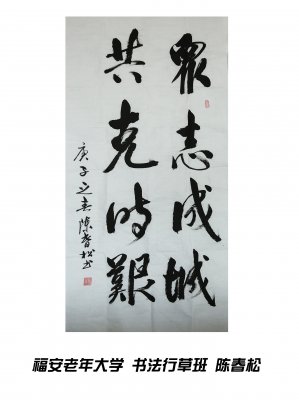 眾志成城
共克时艱
庚子之春陈春松书
福安老年大学 书法行草班 陈春松